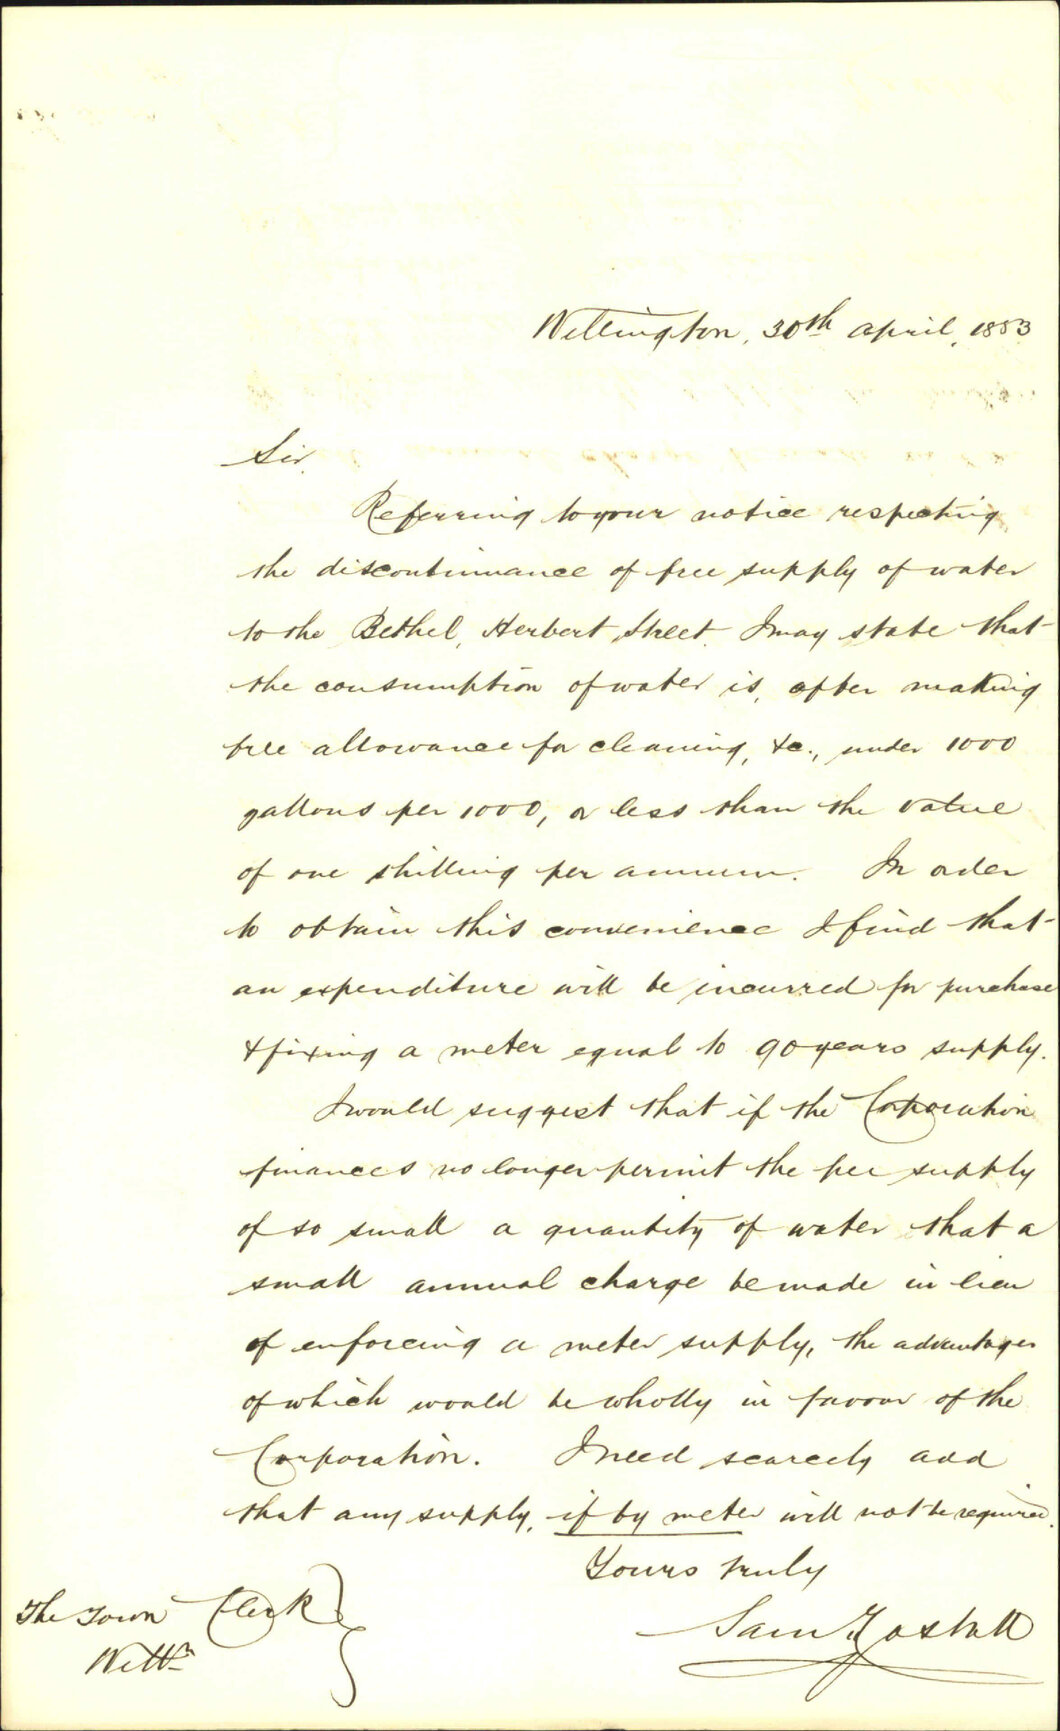 Wellington, 30th April, 1883
Sir,
Referring to your notice respecting
the discontinuance of free supply of water
to the Bethel, Herbert Street. I may state that
the consumption of water is, after making
free allowance for cleaning, &c., under 1000
gallons per 1000, or less than the value
of one shilling per annum. In order
to obtain this convenience I find that
an expenditure will be incurred for purchase
& fixing a meter equal to 90 years supply.
I would suggest that if the Corporation
finances no longer permit the free supply
of so small a quantity of water that a
small annual charge be made in lieu
of enforcing a meter supply, the advantages
of which would be wholly in favour of the
Corporation. I need scarcely add
that any supply, if by meter will not be required.
Yours truly
Sam
The Town Clerk
Welln